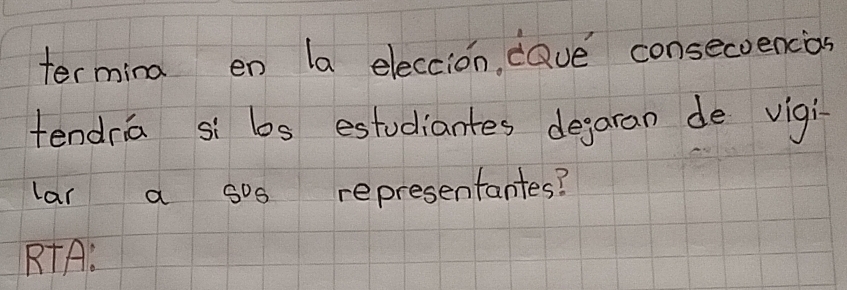 termina en la elección, ¿Qué consecuencias
tendría si los estudiantes degaran de vigi-
lar a sus representantes?
RTA: